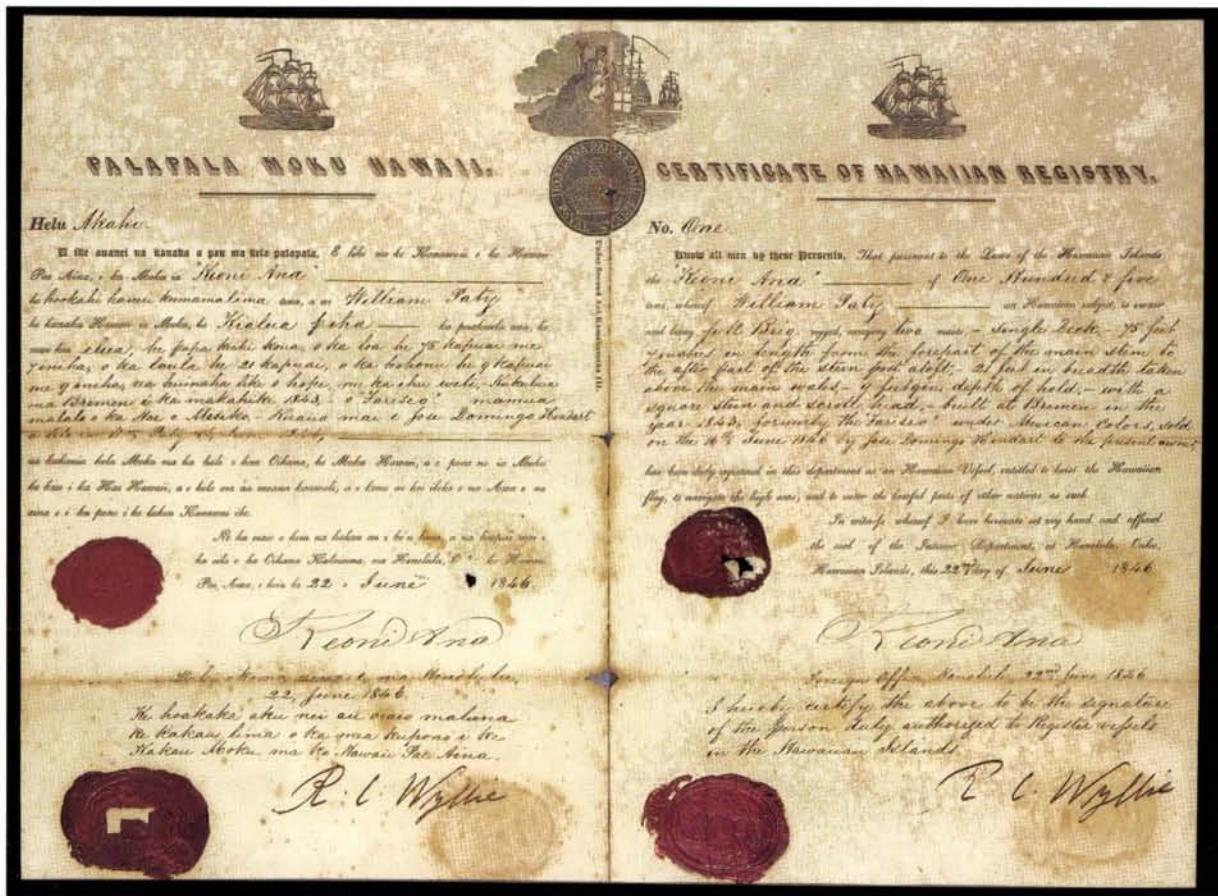 PALAPALA MOKU HAWAII.
Helu Akahi
E ike auanei na kanaka a pau ma keia palapala, E like me ke Kanawai o ko Hawaii
Pae Aina, i ka Moku ia "Keoni Ana"
he hookahi haneri kumamalima tona, a o William Paty
he kanaka Hawaii ia Moku, he Kialua piha
elua, he papa hookahi kona, o ka loa he 75 kapuai me
7 iniha, o ka laula he 21 kapuai, o ka hohonu he 9 kapuai
me 9 iniha, na hunaha like o hope, me ka
ma Bremen i ka makahiki 1843, o "Fariseo" mamua
malalo o ka Hae o Mesiko - Kuaiia mai e Jose Domingo Hindart
ke Moku Hawaii, a e pono no ia Moku
ke kau i ka Hae Hawaii, a e holo ma na moana
aina e i ka pono i ke
Pae Aina, i keia la 22 o June 1846.
Keoni Ana
22, June 1846.
Ke hoakaka aku nei au oiaio maluna
ke kakau lima o ka mea kupono i ke
Kakau Moku ma ko Hawaii Pae Aina.
R. C. Wyllie
Under Second Act Kamehameha III.
CERTIFICATE OF HAWAIIAN REGISTRY.
No. One
Know all men by these Presents, That pursuant to the Laws of the Hawaiian Islands
the "Keoni Ana" of One Hundred & five
tons, whereof William Paty an Hawaiian subject, is owner
and being full Brig rigged, carrying two masts - Single Deck - 75 feet
7 inches in length from the forepart of the main stem to
the after part of the stern post aloft - 21 feet in breadth taken
above the main wales - 9 feet 9 in depth of hold, - with a
square stern and scroll head, - built at Bremen in the
year 1843, formerly the "Fariseo" under Mexican Colors, sold
on the 16th June 1846 by Jose Domingo Hindart to the present owner,
has been duly registered in this department as an Hawaiian Vessel, entitled to hoist the Hawaiian
flag, to navigate the high seas, and to enter the lawful ports of other nations as such.
In witness whereof I have hereunto set my hand and affixed
the seal of the Interior Department, at Honolulu, Oahu,
Hawaiian Islands, this 22nd day of June 1846
Keoni Ana
Foreign Office Honolulu 22nd June 1846
I hereby certify the above to be the signature
of the person duly authorized to Register vessels
in the Hawaiian Islands.
R C. Wyllie